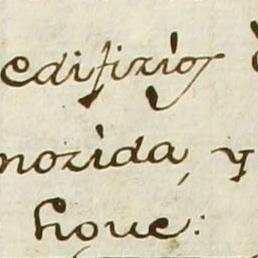 edifizios
nozida, y
houe: